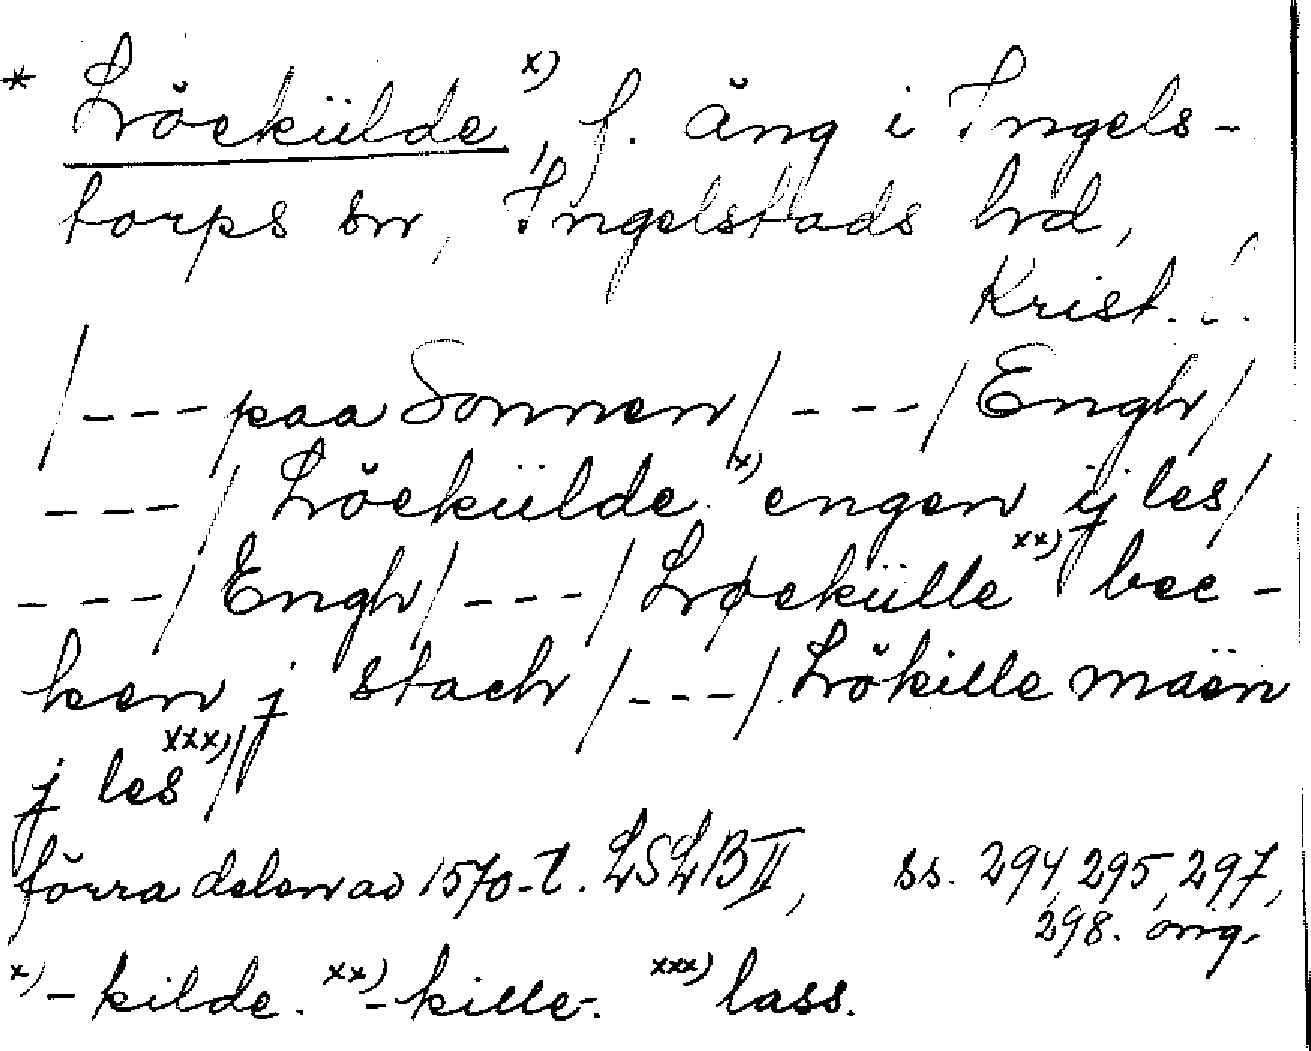 * Löekülde x), f. äng i Ingels-
torps sn, Ingelstads hd,
Krist. l.
/--- paa Sonnen/---/Engh/
---/ Löekülde x) engen ij les/
---/Engh/---/Løekülle xx) bec-
ken j stach /---/ Lökille mäen
j les xxx)/
förra delen av 1570-t. LSLB II, ss. 294, 295, 297,
298. orig.
x) -kilde. xx) -kille-. xxx) lass.